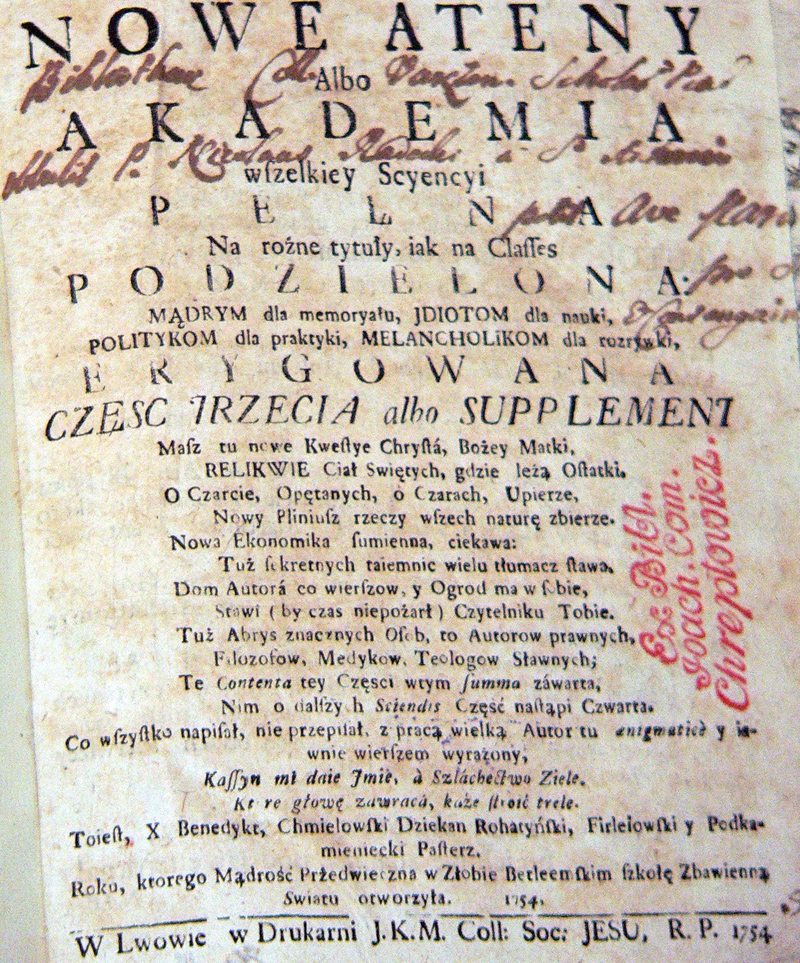 NOWE ATENY
Albo
AKADEMIA
wſzelkiey Scyencyi
PEŁNA
Na rożne tytuły, iak na Claſſes
PODZIELONA:
MĄDRYM dla memoryału, JDIOTOM dla nauki,
POLITYKOM dla praktyki, MELANCHOLIKOM dla rozrywki,
ERYGOWANA
CZĘSC TRZECIA albo SUPPLEMENT
Maſz tu nowe Kweſtye Chryſtá, Bożey Matki,
RELIKWIE Ciał Swiętych, gdzie leżą Oſtatki.
O Czarcie, Opętanych, o Czarach, Upierze,
Nowy Pliniuſz rzeczy wſzech naturę zbierze.
Nowa Ekonomika ſumienna, ciekawa:
Tuż ſekretnych taiemnic wielu tłumacz ſtawa.
Dom Autorá co wierſzow, y Ogrod ma w ſobie,
Stawi ( by czas niepożarł ) Czytelniku Tobie.
Tuż Abrys znacznych Oſob, to Autorow prawnych,
Filozofow, Medykow, Teologow Sławnych;
Te Contenta tey Częsci wtym ſumma záwarta,
Nim o dalſzych Sciendis Część naſtąpi Czwarta.
Co wſzyſtko napiſał, nie przepiſał, z pracą wielką Autor tu ænigmaticè y ia-
wnie wierſzem wyrażony,
Kaſſyn mi daie Jmie, à Szlachectwo Ziele,
Ktore głowę zawracá, każe ſtroić trele.
Toieſt, X Benedykt, Chmielowſki Dziekan Rohatyńſki, Firleiowſki y Podka-
mieniecki Paſterz.
Roku, ktorego Mądrość Przedwieczna w Złobie Betleemſkim ſzkołę Zbawienną
Swiatu otworzyła. 1754.
W Lwowie w Drukarni J.K.M. Coll: Soc: JESU, R. P. 1754
Ex Bibl.
Joach. Com.
Chreptowicz.